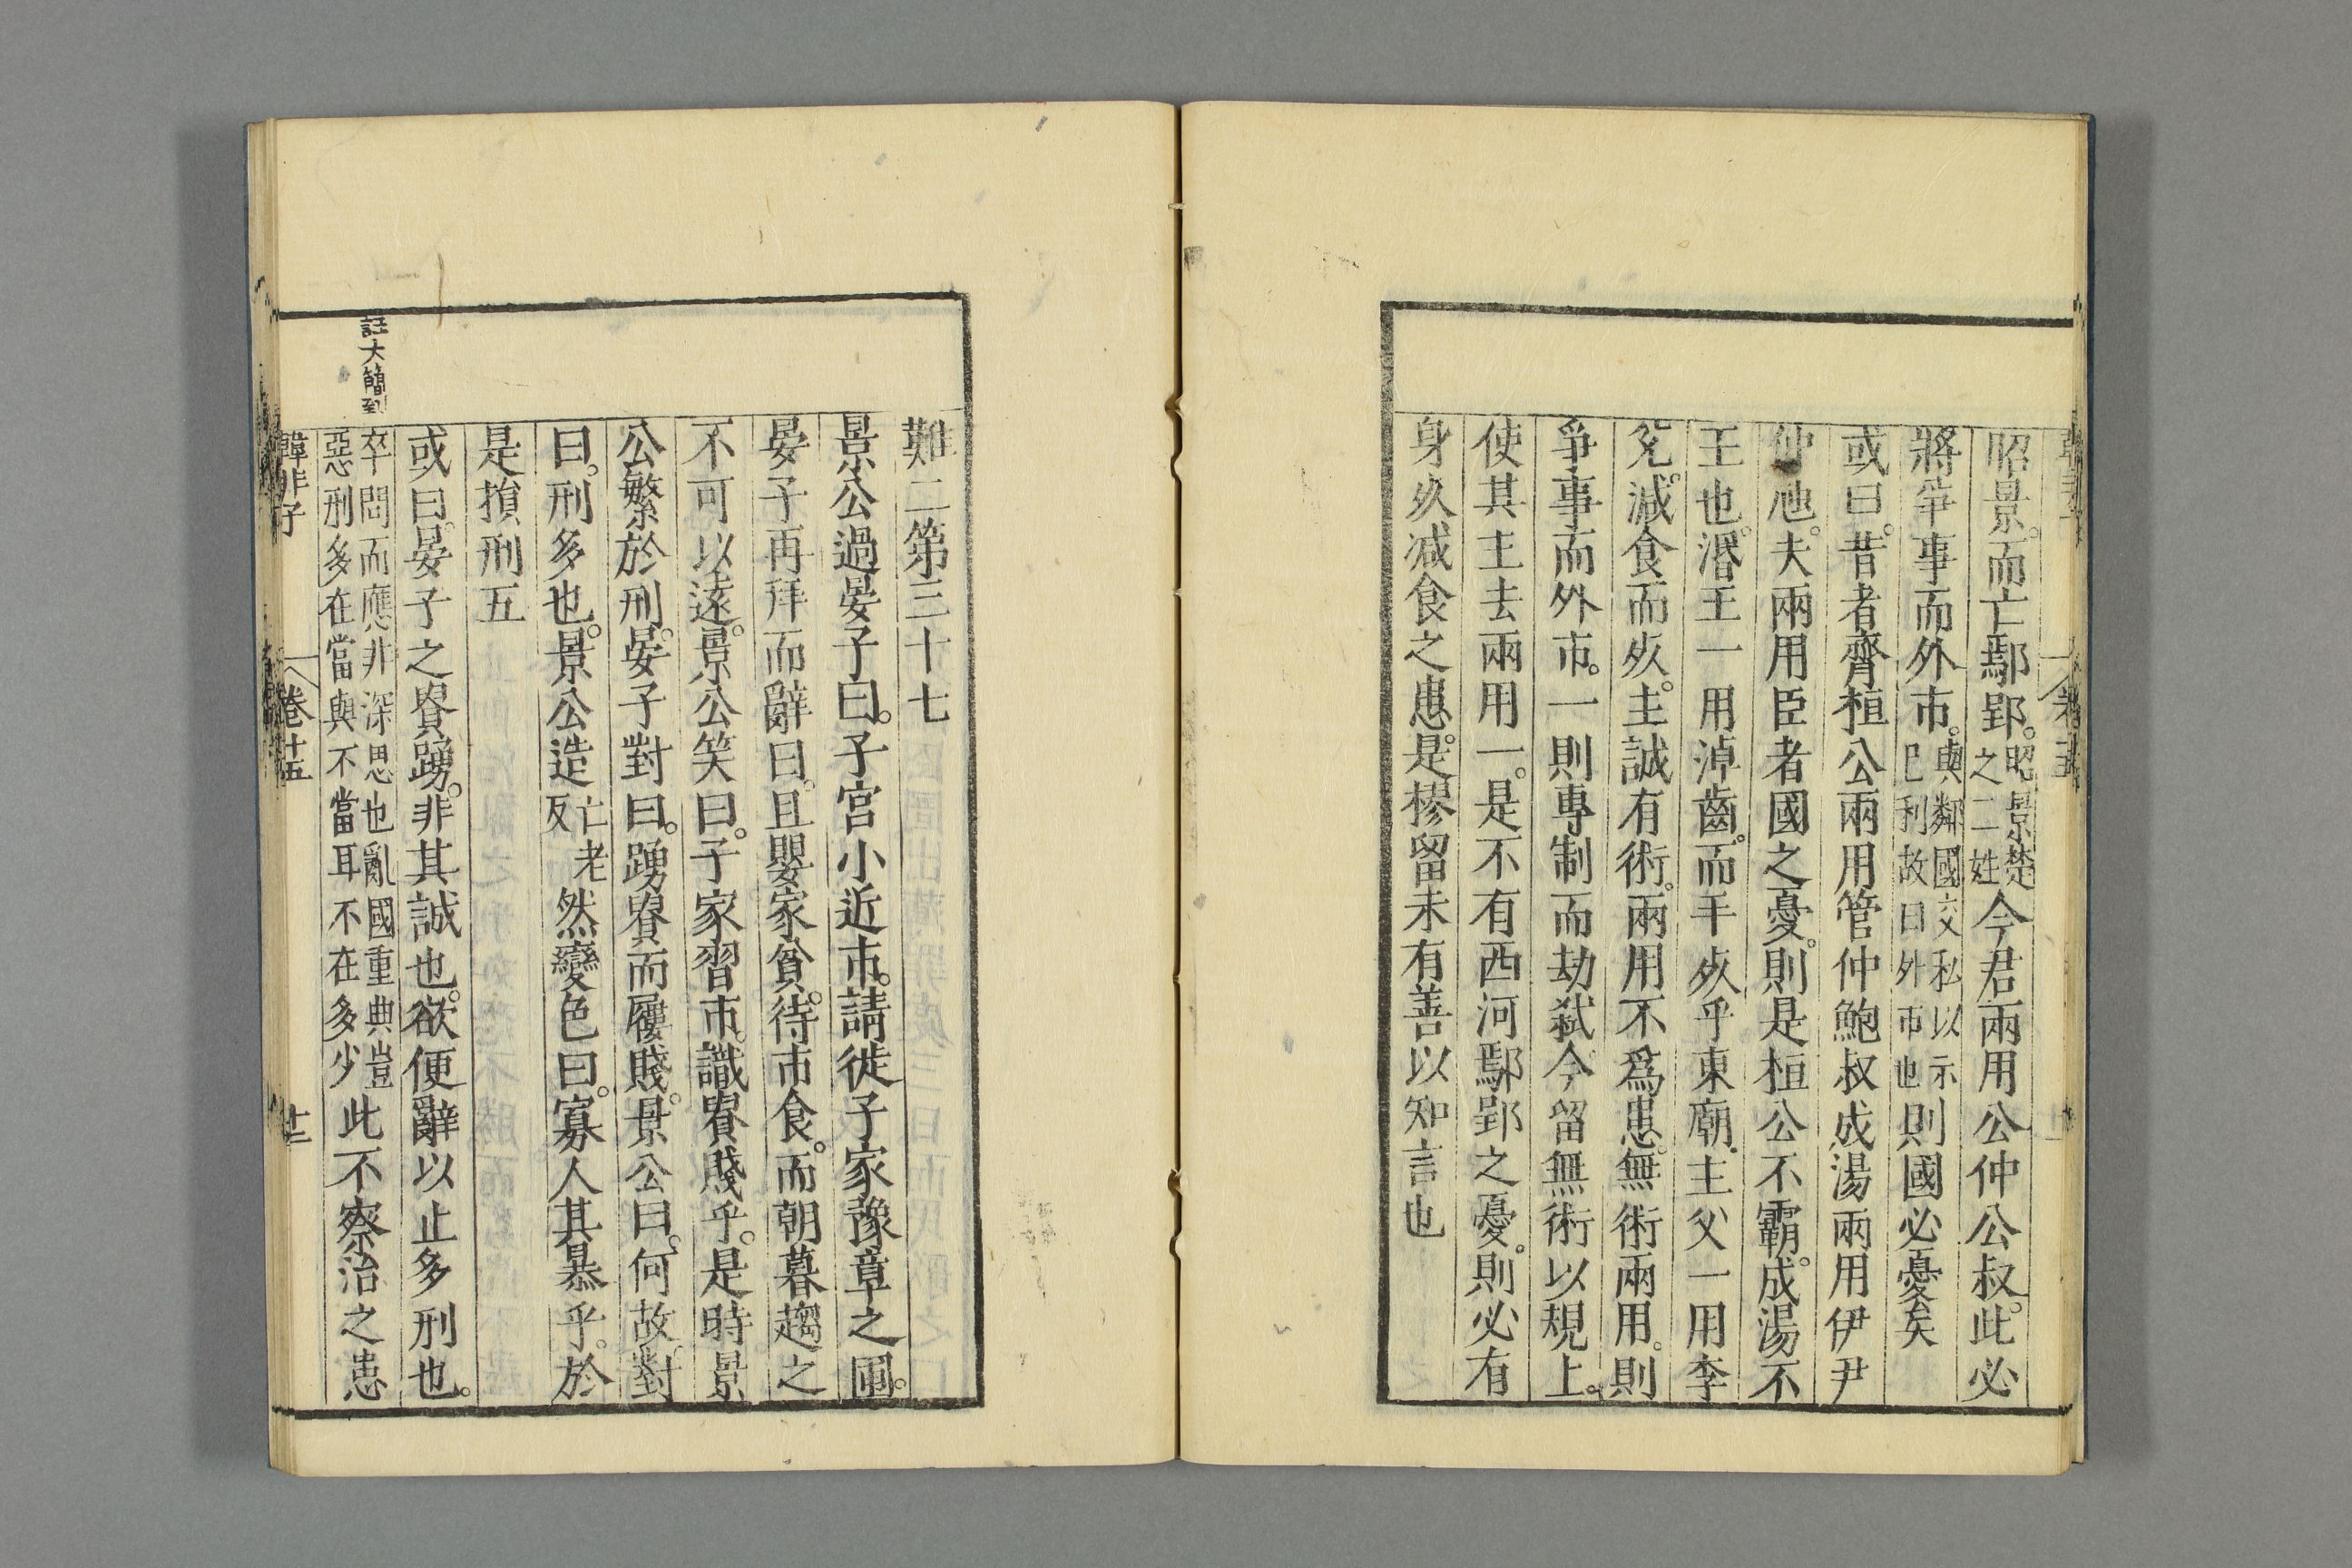 昭景。而亡鄢郢。昭景楚之二姓今君兩用公仲公叔。此必
將爭事而外市。與鄰國交私以示己利故曰外市也則國必憂矣
或曰。昔者齊桓公兩用管仲鮑叔成湯兩用伊尹
仲虺。夫兩用臣者國之憂。則是桓公不霸。成湯不
王也。湣王一用淖齒。而手死乎東廟。主父一用李
兊。減食而死。主誠有術。兩用不爲患。無術兩用。則
爭事而外市。一則專制而劫弑今留無術以規上。
使其主去兩用一。是不有西河鄢郢之憂。則必有
身死減食之患。是樛留未有善以知言也
難二第三十七
景公過晏子曰。子宮小近市。請徙子家豫章之圃。
晏子再拜而辭曰。且嬰家貧。待市食。而朝暮趨之
不可以遠。景公笑曰。子家習市。識貴賤乎。是時景
公繁於刑。晏子對曰。踴貴而屨賤。景公曰。何故。對
曰。刑多也。景公造亡老反然變色曰。寡人其暴乎。於
是損刑五
或曰。晏子之貴踴。非其誠也。欲便辭以止多刑也。
卒問而應非深思也亂國重典豈惡刑多在當與不當耳不在多少此不察治之患
註大簡到
韓非子
卷十五